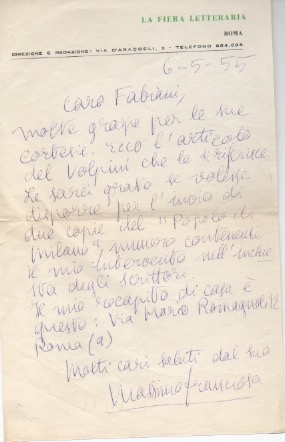 LA FIERA LETTERARIA
ROMA
DIREZIONE E REDAZIONE: VIA D'ARACOELI, 3 - TELEFONO
6-5-55
Caro Fabiani,
molte grazie per le sue
cortesie. Ecco l'articolo
del Volpini che la riferisce
Le sarei grato se volesse
disporre per l'invio di
due copie del "Popolo di
Milano", numero contenente
il mio intervento nell'inchie
sta degli scrittori.
Il mio recapito di casa è
questo: Via Mario Romagnoli 12
Roma (a)
Molti cari saluti dal suo
Massimo Franciosa